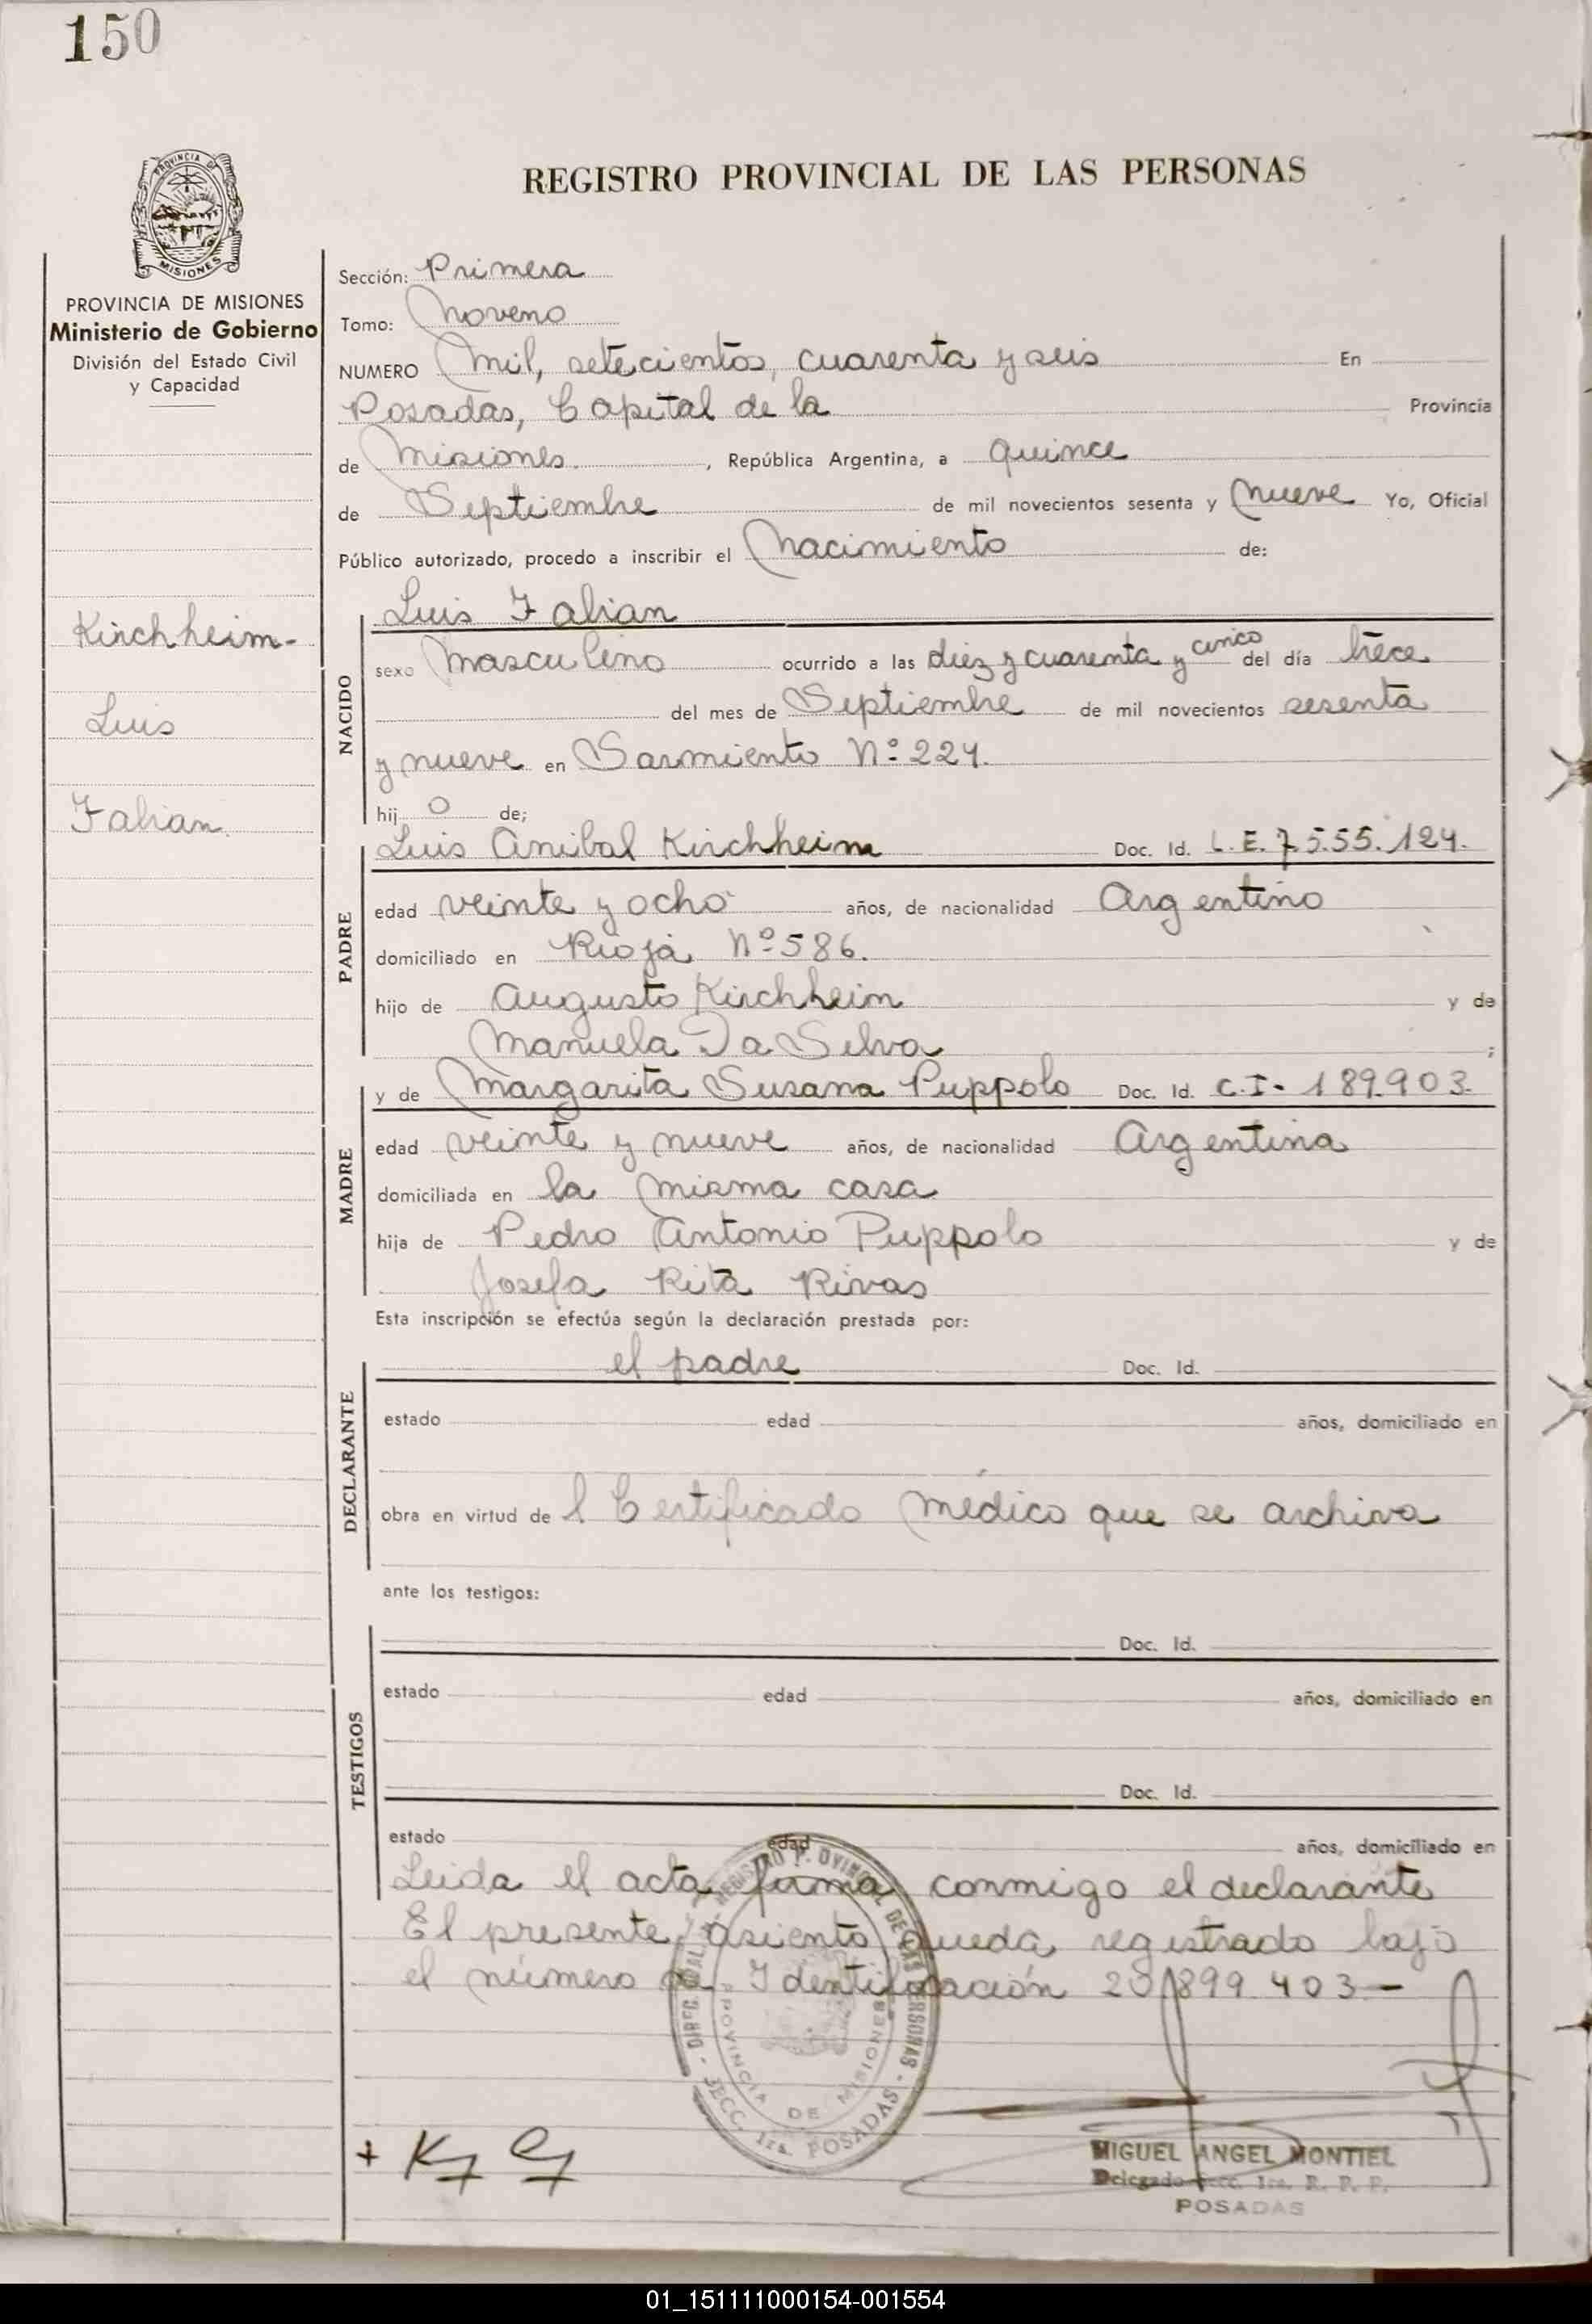 150
REGISTRO PROVINCIAL DE LAS PERSONAS
PROVINCIA DE MISIONES
PROVINCIA DE MISIONES
Ministerio de Gobierno
División del Estado Civil
y Capacidad
Kirchheim-
Luis
Fabian
Sección: Primera
Tomo: Noveno
NUMERO Mil, setecientos, cuarenta y seis En
Posadas, Capital de la Provincia
de Misiones. , República Argentina, a quince
de Septiembre de mil novecientos sesenta y nueve Yo, Oficial
Público autorizado, procedo a inscribir el Nacimiento de:
Luis Fabian
NACIDO
sexo Masculino ocurrido a las diez y cuarenta y cinco del día trece
del mes de Septiembre de mil novecientos sesenta
y nueve en Sarmiento Nº 224.
hij o de;
Luis Anibal Kirchheim Doc. Id. L.E. 7.555.124.
PADRE
edad veinte y ocho años, de nacionalidad Argentino
domiciliado en Rioja Nº 586.
hijo de Augusto Kirchheim y de
Manuela Da Selva ;
y de Margarita Susana Puppolo Doc. Id. C.I- 189.903.
MADRE
edad veinte y nueve años, de nacionalidad Argentina
domiciliada en la misma casa
hija de Pedro Antonio Puppolo y de
Josefa Rita Rivas
Esta inscripción se efectúa según la declaración prestada por:
el padre Doc. Id.
DECLARANTE
estado edad años, domiciliado en
obra en virtud de l Certificado médico que se archiva
ante los testigos:
Doc. Id.
TESTIGOS
estado edad años, domiciliado en
Doc. Id.
estado edad años, domiciliado en
Leida el acta, firma conmigo el declarante
El presente asiento queda registrado bajo
el número de Identificación 20.899.403-
REGISTRO PROVINCIAL DE LAS PERSONAS - SECC. 1ra. POSADAS -
PROVINCIA DE MISIONES
MIGUEL ANGEL MONTIEL
Delegado Secc. 1ra. R. P. P.
POSADAS
01_151111000154-001554